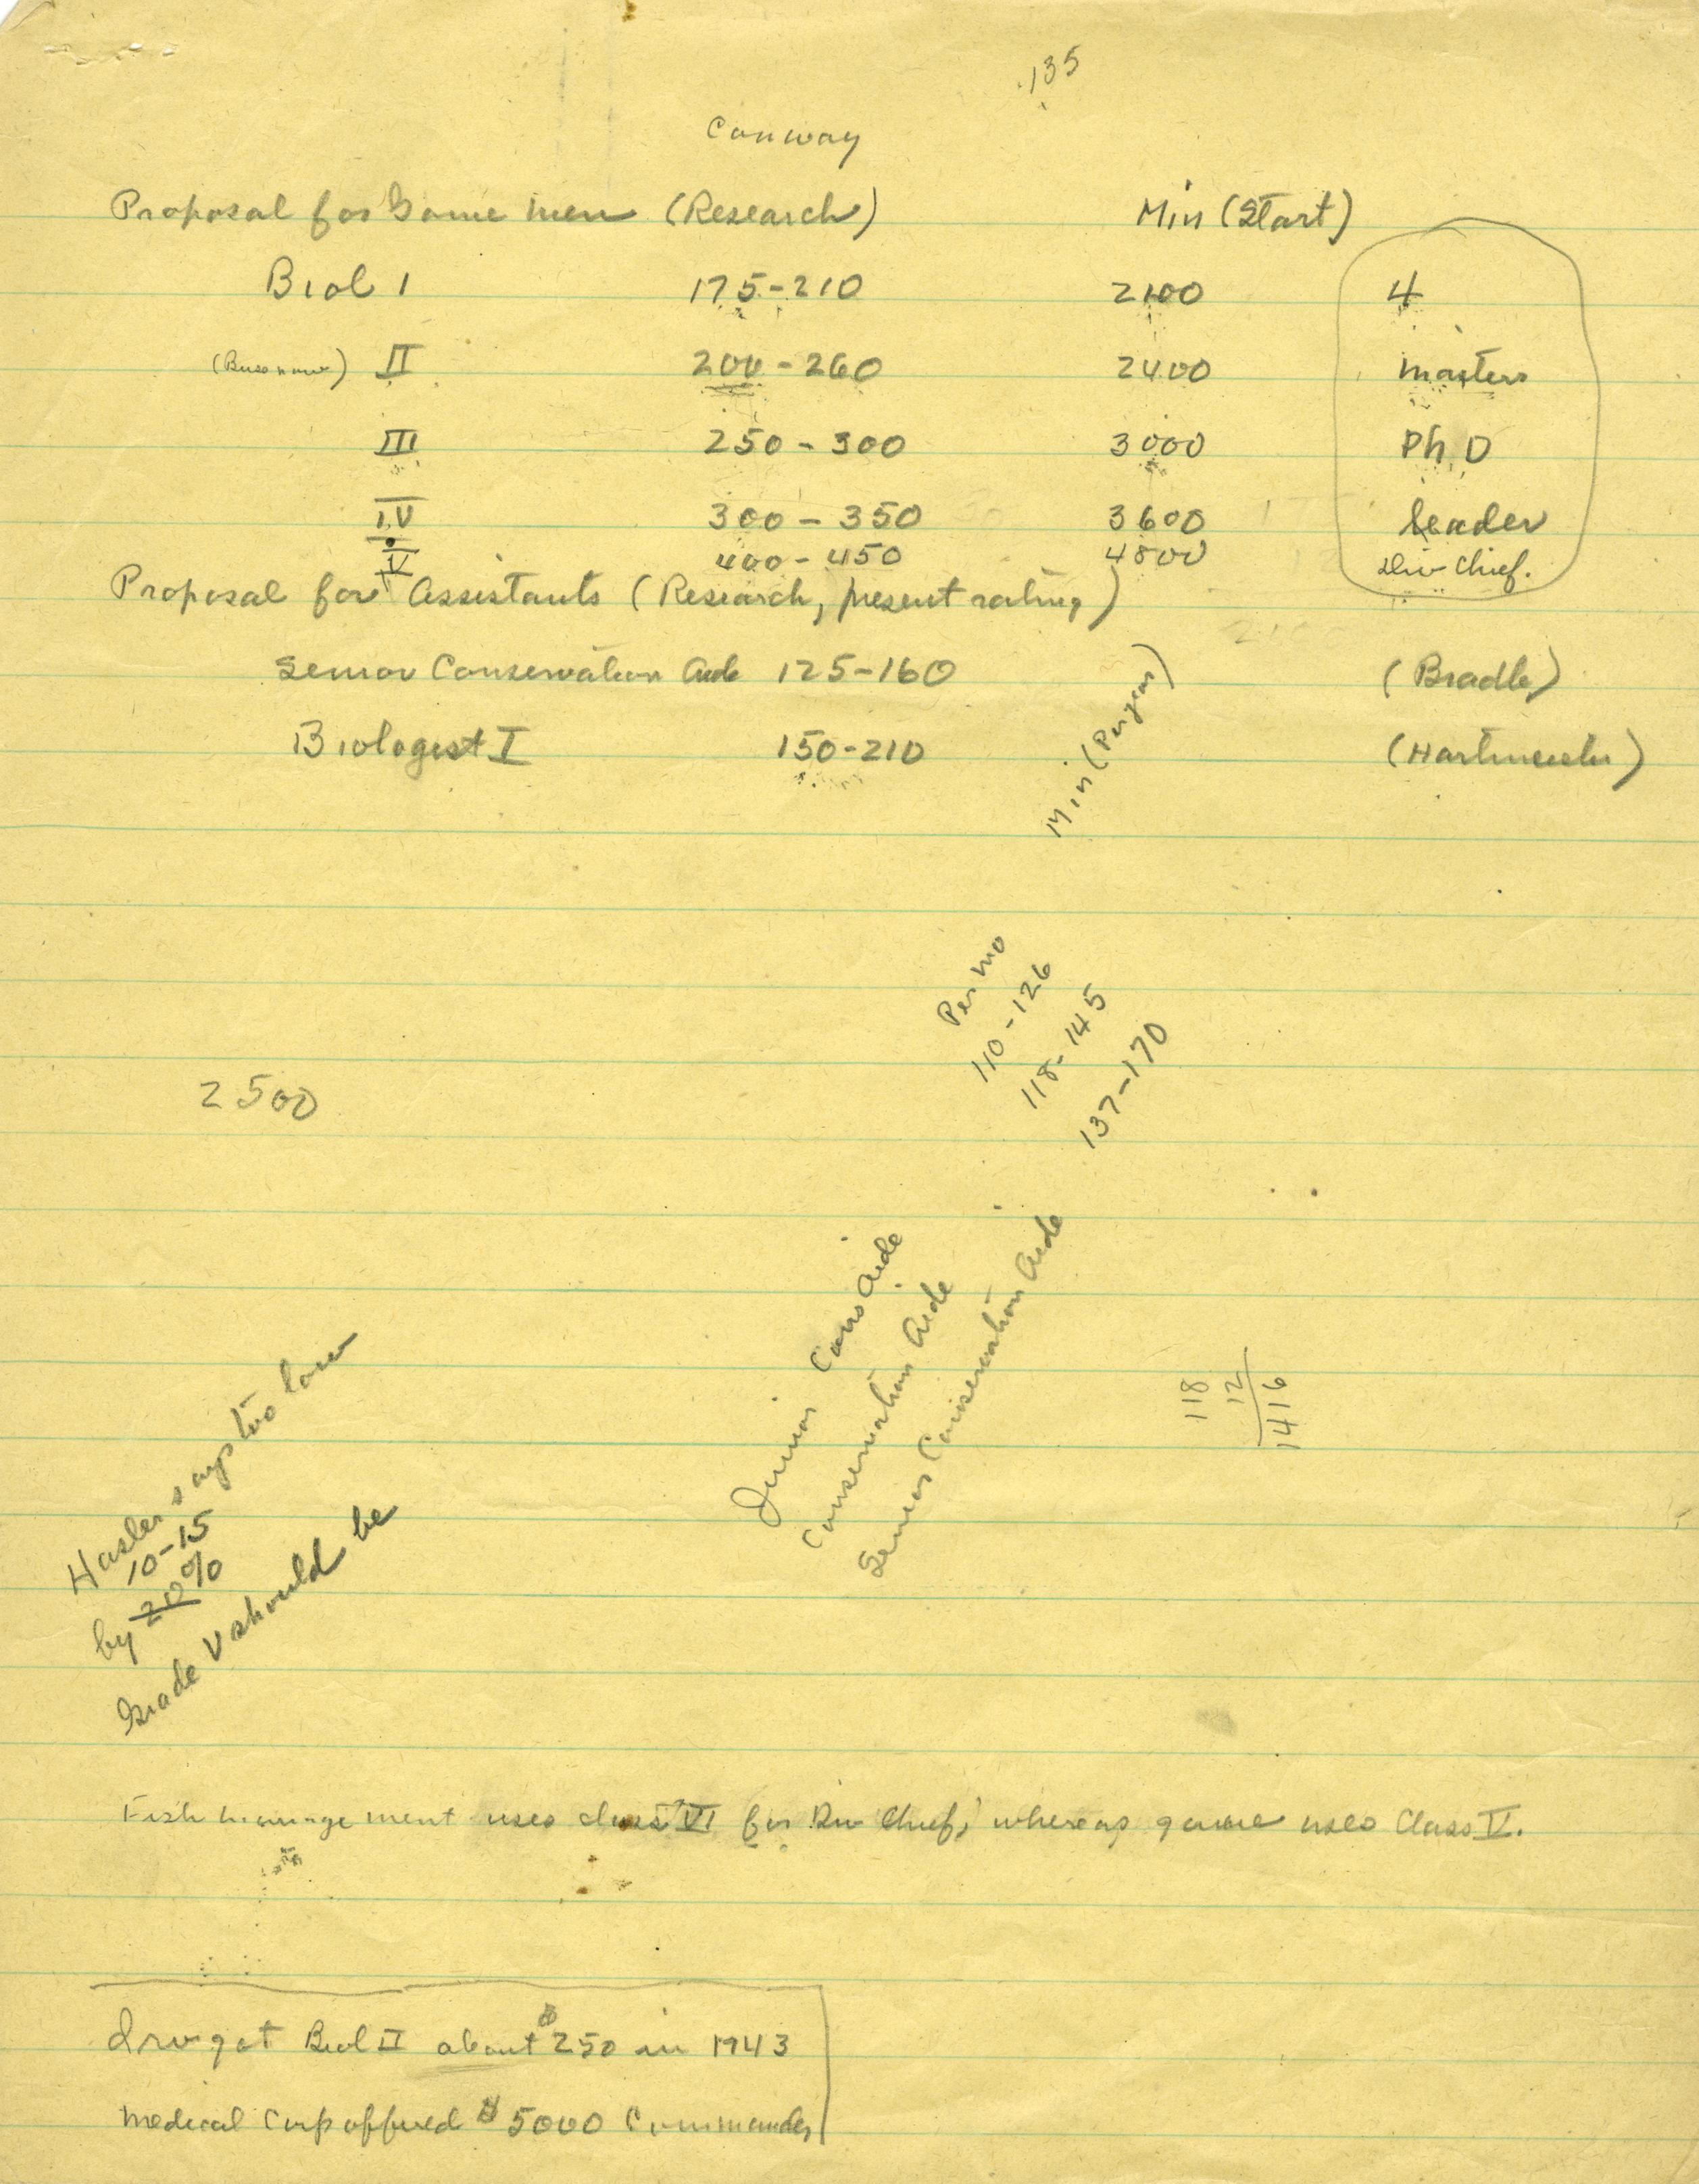 135
Conway
Proposal for Game men (Research) Min (Start)
Biol I 175-210 2100 4
(Buss now) II 200-260 2400 masters
III 250-300 3000 Ph D
IV 300-350 3600 leader
V 400-450 4800 Div Chief.
Proposal for Assistants (Research, present rating)
Senior Conservation Aide 125-160 (Bradle)
Biologist I 150-210 (Hartmeister)
Min (Per year)
Per mo
110-126
118-145
137-170
2500
Junior Cons Aide
Conservation Aide
Senior Conservation Aide
118
12
1416
Hasler says too low
10-15
by 20%
Grade V should be
Fish management uses class VI for Div Chief, whereas game uses Class V.
Irv got Biol II about $250 in 1943
Medical Corp offered $5000 Commander